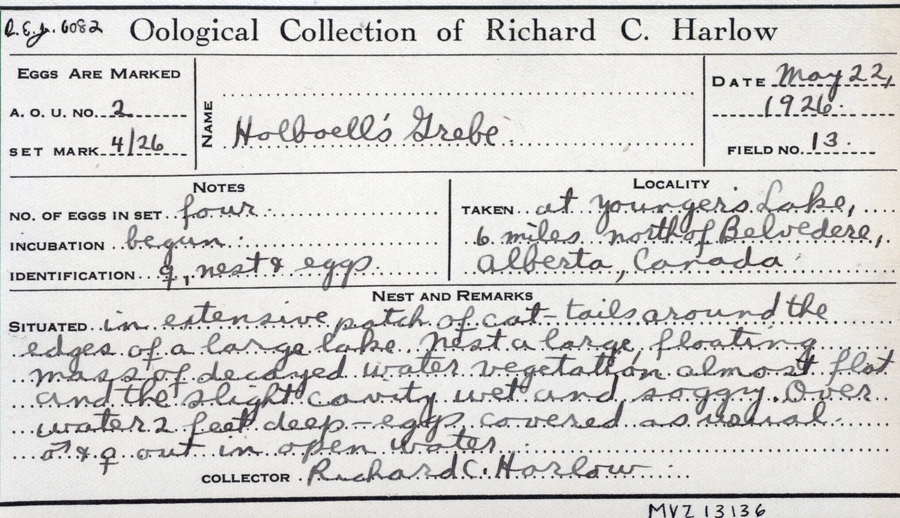 R.E.J. 6082
Oological Collection of Richard C. Harlow
EGGS ARE MARKED
A. O. U. NO. 2
SET MARK 4/26
NAME Holboell's Grebe.
DATE May 22,
1926.
FIELD NO. 13.
NOTES
NO. OF EGGS IN SET four.
INCUBATION begun.
IDENTIFICATION ♀, nest & eggs
LOCALITY
TAKEN at Younger's Lake,
6 miles north of Belvedere,
Alberta, Canada
NEST AND REMARKS
SITUATED in extensive patch of cat-tails around the
edges of a large lake. Nest a large, floating
mass of decayed water vegetation almost flat
and the slight cavity wet and soggy. Over
water 2 feet deep - eggs covered as usual.
♂ & ♀ out in open water.
COLLECTOR Richard C. Harlow
MVZ 13136